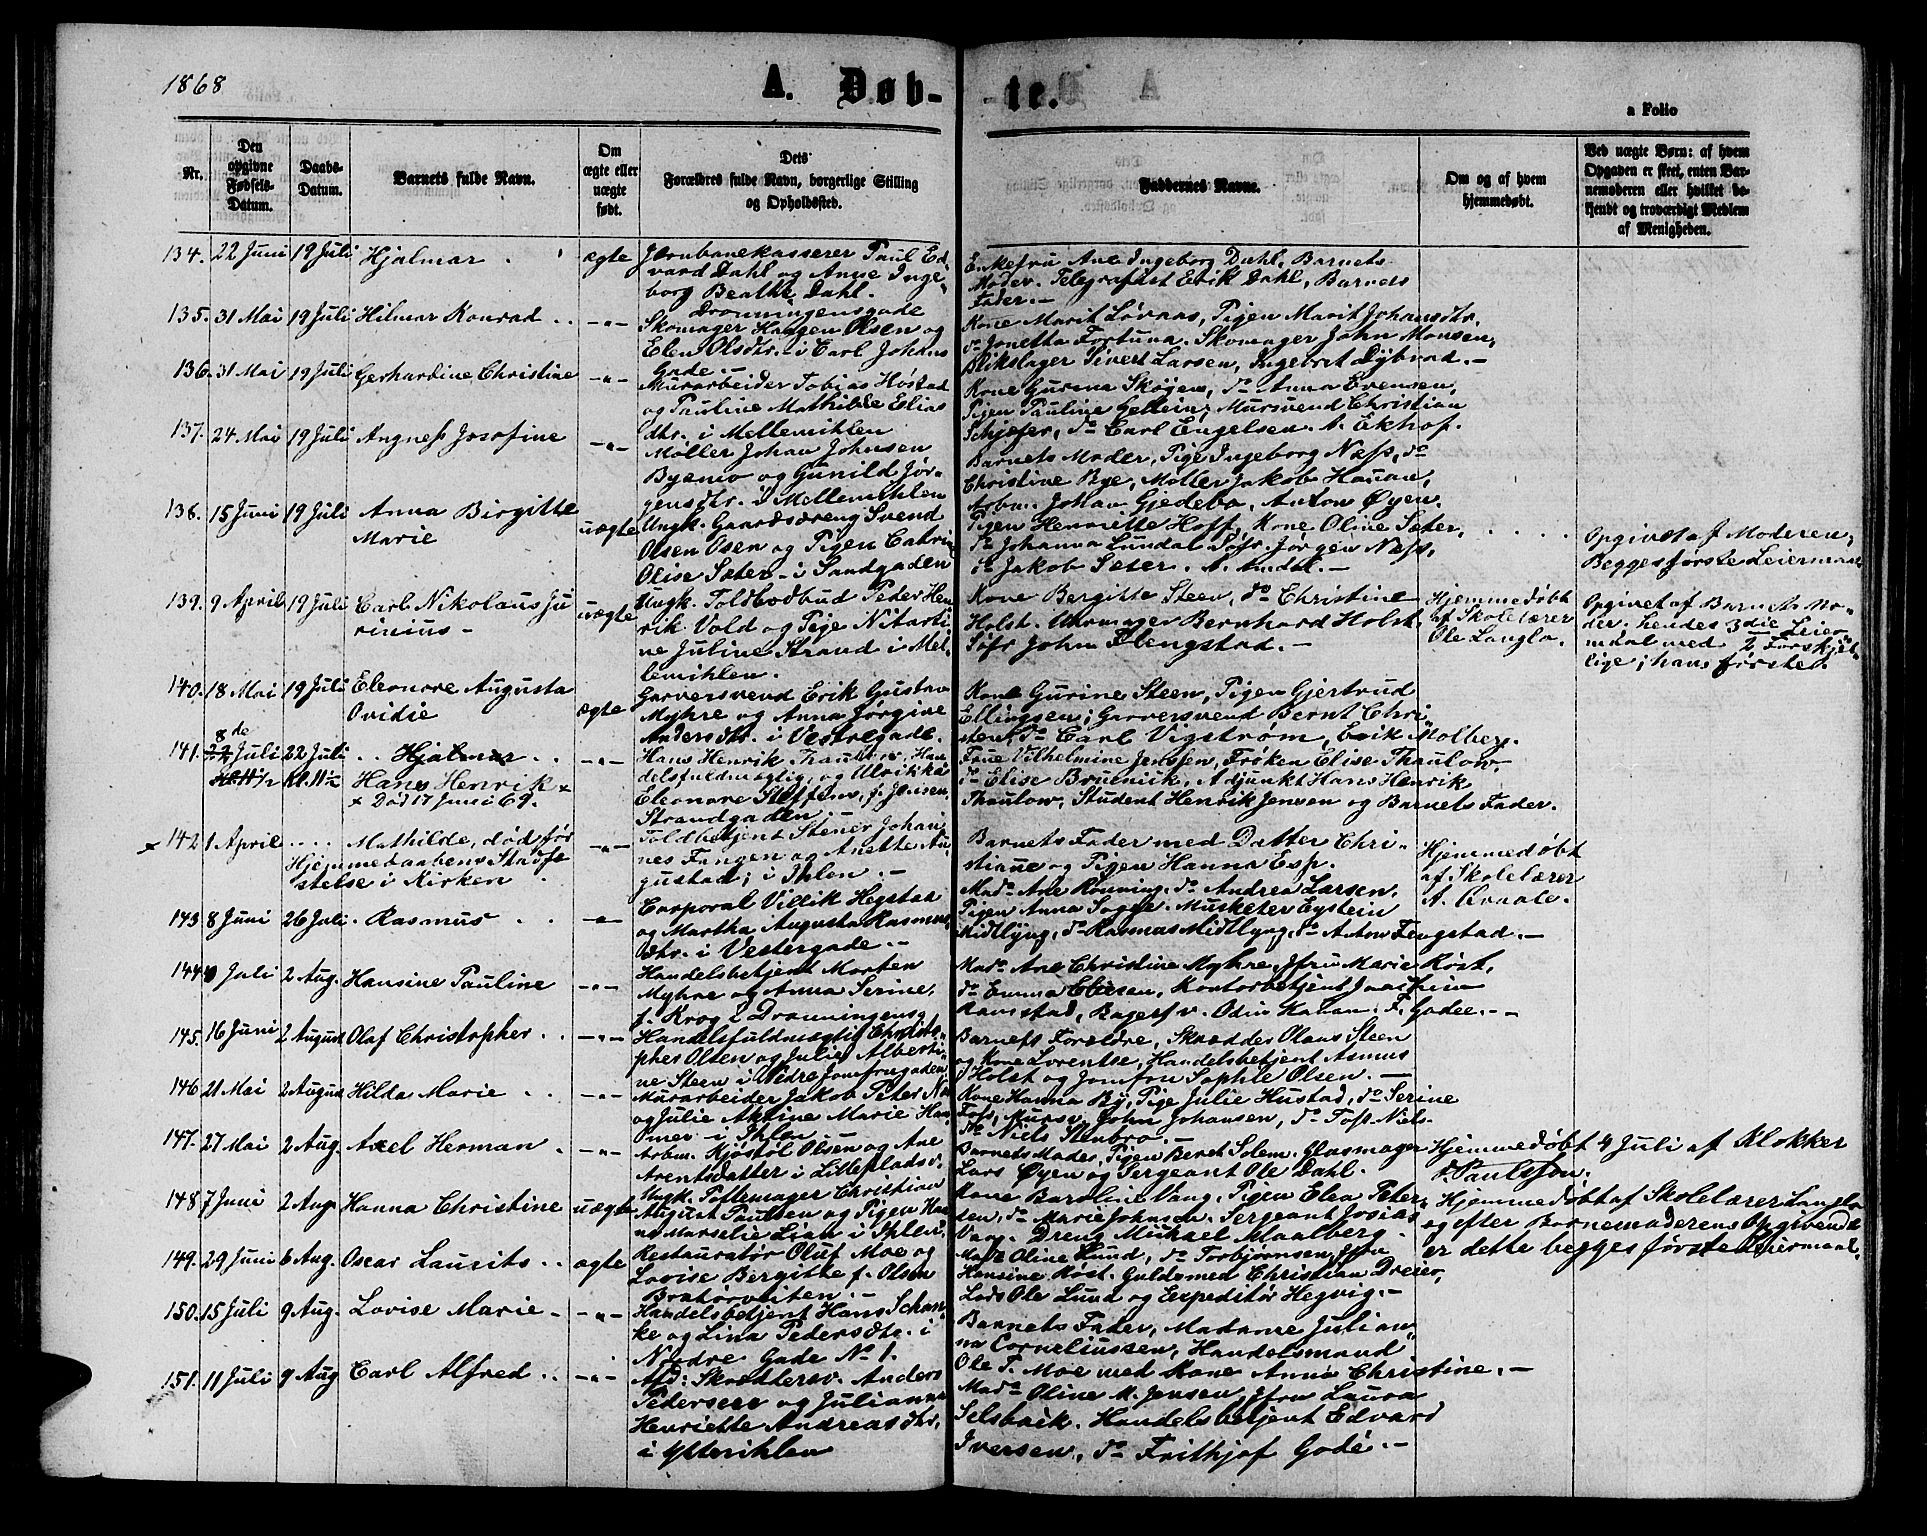 1868
A. Døb-
te.
a Folio
Nr.
Den opgivne Fødsels-Datum.
Daabs-Datum.
Barnets fulde Navn.
Om ægte eller uægte født.
Dets Forældres fulde Navn, borgerlige Stilling og Opholdssted.
Faddernes Navne.
Om og af hvem hjemmedøbt.
Ved uægte Børn: af hvem Opgaven er skeet, enten Barnemoderen eller hvilket bekjendt og troværdigt Medlem af Menigheden.
134. 22 Juni 19 Juli Hjalmar ægte
Jernbanekasserer Paul Ed-
vard Dahl og Anne Inge-
borg Beathe Dahl.
Dronningensgade
Enkefru Ane Ingeborg Dahl, Barnets
Moder. Telegrafist Erik Dahl, Barnets
Fader.—
135. 31 Mai 19 Juli Hilmar Konrad — " —
Skomager Haagen Olsen og
Elen Olsdtr. i Carl Johans
Gade.—
Kone Marit Løvaas, Pigen Marit Johansdtr.
do Jonetta Fortuna. Skomager John Monsen,
Blikslager Sivert Larsen, Ingebret Dybvad.—
136. 31 Mai 19 Juli Gerhardine Christine — " —
Murarbeider Tobias Høstad
og Pauline Mathilde Elias
dtr. i Mellemihlen
Kone Gurina Skogen, do Anna Evensen,
Pigen Pauline Gellein, Mursvend Christian
Schjefer, do Carl Engelsen. A. Ekhof.
137. 24 Mai 19 Juli Angness Josefine — " —
Møller Johan Johnsen
Byemo og Gunild Jør-
gensdtr. i Mellemihlen
Barnets Moder, Pige Ingeborg Næss, do
Christine Bye, Møller Jakob Hauan,
Arbm. Johan Gjedebo, Anton Øyen.
138. 15 Juni 19 Juli Anna Birgitte
Marie
uægte
Ungk. Gaardsdreng Svend
Olsen Osen og Pigen Cathri
Olise Sæter i Sandgaden
Pigen Henriette Hoff, Kone Oline Sæter,
do Johanna Lundal Søfr. Jørgen Næss,
do Jakob Sæter. A. Andal.—
Opgivet af Moderen,
Begges første Leiermaal
139. 9 April 19 Juli Carl Nikolaus Ju
rinius -
uægte
Ungk. Toldbodbud Peder Hen
rik Vold og Pige Nikarti
ne Juline Strand i Mel-
lemihlen.
Kone Bergitte Steen, do Christine
Holst. Uhrmager Bernhard Holst,
Søfr John Flengstad.—
Hjemmedøbt
af Skolelærer
Ole Langlo.
Opgivet af Barnets Mo-
der. hendes 3die Leier-
maal med 2 Forskjel-
lige; hans første.
140. 18 Mai 19 Juli Eleonore Augusta
Ovidie
ægte
Garversvend Erik Gustav
Myhre og Anna Jørgine
Andersdtr. i Vestregade.
Kone Gurine Steen, Pigen Gjertrud
Ellingsen; Garversvend Bernt Chri-
sten, do Carl Vigstrøm, Erik Molberg.
141. 8de Juli Kl. 11½ 22 Juli Kl. 11½ Hjalmar
Hans Henrik x
x Død 17 Juni 69.
— " —
Hans Henrik Thaulow, Han
delsfuldmægtig, og Ulrikke
Eleonore Steffens, f. Jensen,
Strandgaden.—
Frue Vilhelmine Jenssen, Frøken Elise Thaulow,
do Elise Bruenick, Adjunkt Hans Henrik
Thaulow, Student Henrik Jensen og Barnets Fader.
x 142 1 April Mathilde, død før
Hjemmedaabens Stadfæ
stelse i Kirken
— " —
Toldbetjent Stener Johan
nes Fangen og Anette Au-
gustad; i Ihlen.—
Barnets Fader med Datter Chri-
stiane og Pigen Hanna Esp.
Hjemmedøbt
af Skolelærer
143 8 Juni 26 Juli Rasmus — " —
Corporal Villik Hegstad
og Martha Augusta Rasmus
dtr. i Vestergade.—
Mad. Ane Rønning. do Andrea Larsen,
Pigen Anna Sagge. Musketer Eystein
Midtlyng, do Rasmus Midtlyng, do Anton Fengstad.—
144 Juli 2 Aug. Hansine Pauline — " —
Handelsbetjent Morten
Myhre og Anna Serine,
f. Krog i Dronningensg
Mad. Ane Christine Myhre, Jfru Marie Køst,
do Emma Ellesen, Kontorbetjent Joachim
Ramstad, Bagersv. Odin Kavan. F. Gadee.—
145. 16 Juni 2 August Olaf Christopher — " —
Handelsfuldmægtig Christo
pher Olsen og Julie Alberti-
ne Steen i Nedre Jomfrugaden
Barnets Forældre, Skrædder Olaus Steen
og Kone Lorentse, Handelsbetjent Asmus
Holst og Jomfru Sophie Olsen.—
146 21 Mai 2 August Hilda Marie — " —
Murarbeider Jakob Peter
og Julie Antine Marie Han
i Ihlen
Kone Hanna By, Pige Julie Hustad, do Serine
Foss, Mursv. John Johansen, do Tosp. Niels-
do Niels Stenbro.—
147. 27 Mai 2 Aug. Axel Herman — " —
Arbm. Kjøstøl Olsen og Ane
Arentsdatter i Lilleplads
Barnets Moder, Pigen Beret Solem. Glasmager
Lars Øyen og Sergeant Ole Dahl.
Hjemmedøbt 4 Juli af Klokker
Paulsson.
148 7 Juni 2 Aug. Hanna Christine uægte
Ungk. Pottemager Christian
August Paulsen og Pigen Han
na Marselie Lian i Ihlen
Kone Baroline Vang, Pigen Elea Peter-
sen, do Marie Johnsen. Sergeant Josias
Vang. Dreng Mikael Maalberg.
Hjemmedøbt af Skolelærer Langlo
og efter Barnemoderens Opgivende
er dette begges første Leiermaal.
149. 29 Juni 6 Aug. Oscar Laurits ægte
Restauratør Oluf Moe og
Lovise Bergitte f. Olsen
Bratørveiten.—
Mad. Oline Lund, do Torbjørnsen, Jfru
Hansine Køst. Guldsmed Christian Dreier,
Lods Ole Lund og Expeditør Hegvig.—
150. 15 Juli 9 Aug. Lovise Marie — " —
Handelsbetjent Hans Schan-
ke og Lina Pedersdtr. i
Nordre Gade No 1.
Barnets Fader, Madame Julian-
na Corneliussen, Handelsmand
Ole T. Moe med Kone Anna Christine.—
151. 11 Juli 9 Aug Carl Alfred — " —
Afd: Skræddersv. Anders
Pedersen og Julianna
Henriette Andreasdtr.
i Ytterihlen
Mad. Oline M. Jensen, Jfru Laura
Selsbak. Handelsbetjent Edvard
Iversen, do Frithjof Gode.—